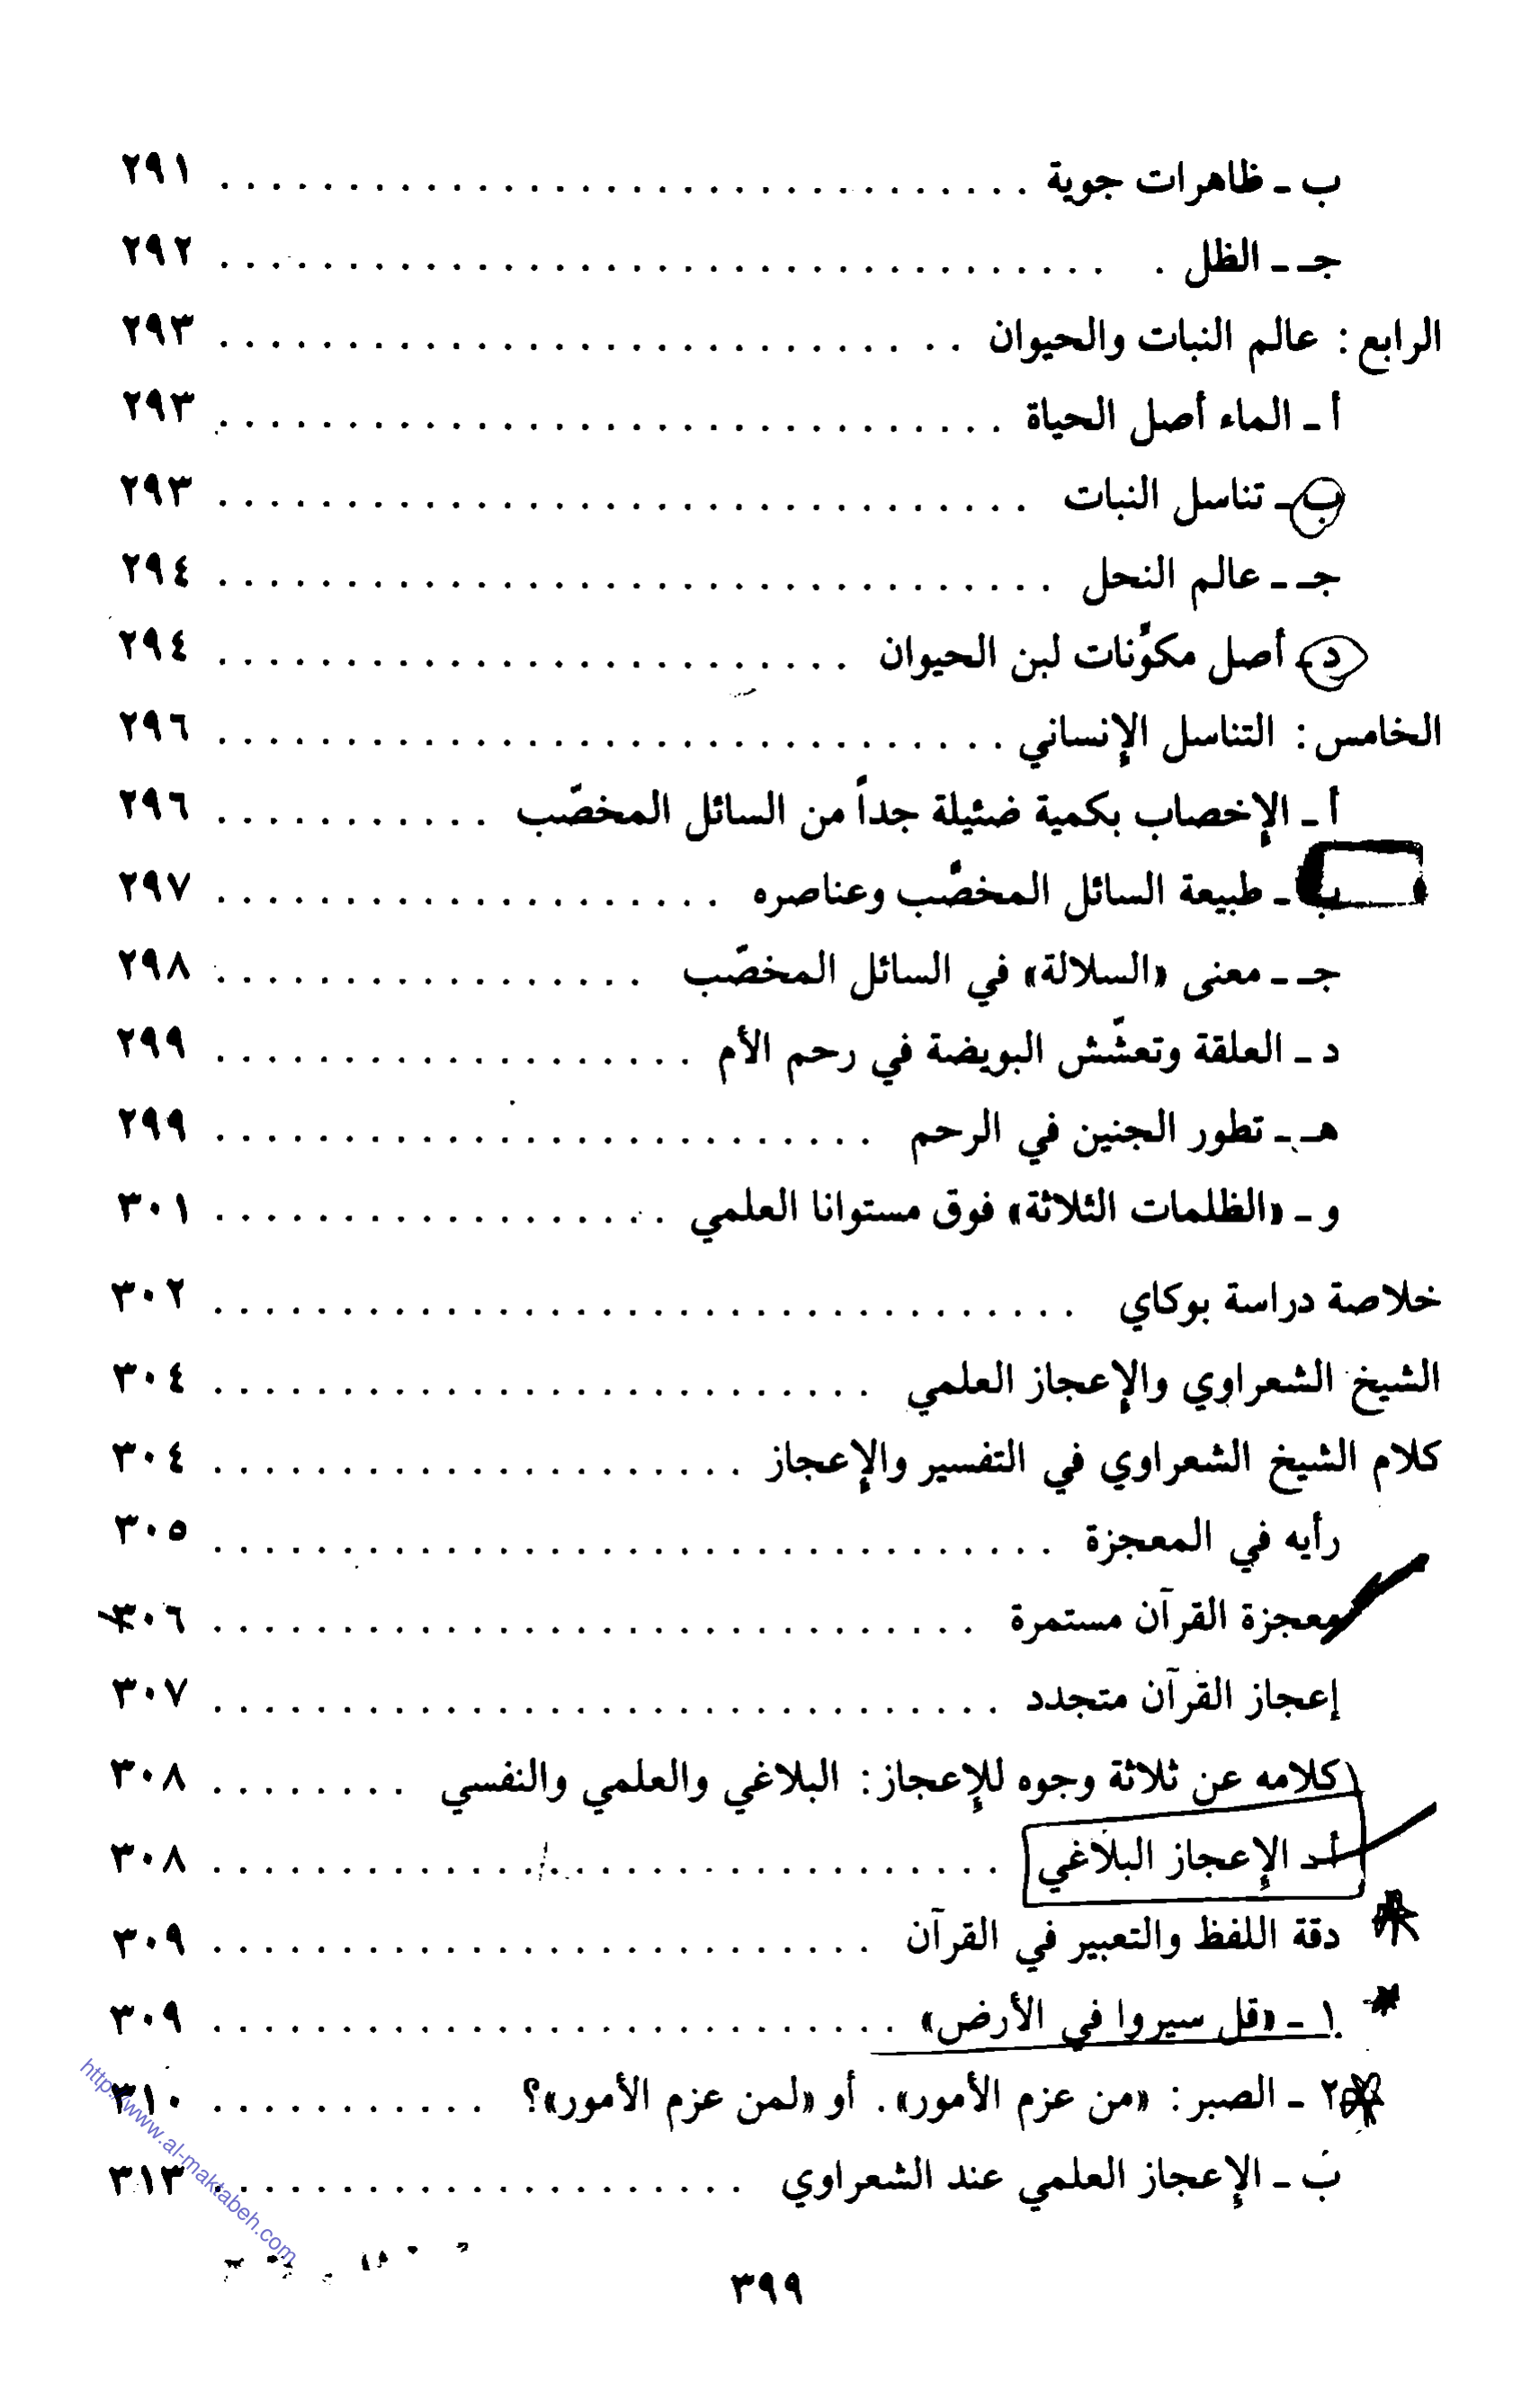 ب ـ ظاهرات جوية . . . . . . . . . . . . . . . . . . . . ٢٩١
جـ ـ الظل . . . . . . . . . . . . . . . . . . . . ٢٩٢
الرابع: عالم النبات والحيوان . . . . . . . . . . . . . . . . . . . . ٢٩٣
أ ـ الماء أصل الحياة . . . . . . . . . . . . . . . . . . . . ٢٩٣
ب ـ تناسل النبات . . . . . . . . . . . . . . . . . . . . ٢٩٣
جـ ـ عالم النحل . . . . . . . . . . . . . . . . . . . . ٢٩٤
د ـ أصل مكوّنات لبن الحيوان . . . . . . . . . . . . . . . . . . . . ٢٩٤
الخامس: التناسل الإنساني . . . . . . . . . . . . . . . . . . . . ٢٩٦
أ ـ الإخصاب بكمية ضئيلة جداً من السائل المخصّب . . . . . . . . . . . ٢٩٦
ب ـ طبيعة السائل المخصّب وعناصره . . . . . . . . . . . . . . . . . . . . ٢٩٧
جـ ـ معنى «السلالة» في السائل المخصّب . . . . . . . . . . . . . . . . . ٢٩٨
د ـ العلقة وتعشّش البويضة في رحم الأم . . . . . . . . . . . . . . . . . . . ٢٩٩
هـ ـ تطور الجنين في الرحم . . . . . . . . . . . . . . . . . . . . ٢٩٩
و ـ «الظلمات الثلاثة» فوق مستوانا العلمي . . . . . . . . . . . . . . . . . . ٣٠١
خلاصة دراسة بوكاي . . . . . . . . . . . . . . . . . . . . ٣٠٢
الشيخ الشعراوي والإعجاز العلمي . . . . . . . . . . . . . . . . . . . . ٣٠٤
كلام الشيخ الشعراوي في التفسير والإعجاز . . . . . . . . . . . . . . . . . . . . ٣٠٤
رأيه في المعجزة . . . . . . . . . . . . . . . . . . . . ٣٠٥
معجزة القرآن مستمرة . . . . . . . . . . . . . . . . . . . . ٣٠٦
إعجاز القرآن متجدد . . . . . . . . . . . . . . . . . . . . ٣٠٧
كلامه عن ثلاثة وجوه للإعجاز: البلاغي والعلمي والنفسي . . . . . . . . ٣٠٨
أ ـ الإعجاز البلاغي . . . . . . . . . . . . . . . . . . . . ٣٠٨
دقة اللفظ والتعبير في القرآن . . . . . . . . . . . . . . . . . . . . ٣٠٩
١ ـ «قل سيروا في الأرض» . . . . . . . . . . . . . . . . . . . . ٣٠٩
٢ ـ الصبر: «من عزم الأمور». أو «لمن عزم الأمور»؟ . . . . . . . . . . . ٣١٠
ب ـ الإعجاز العلمي عند الشعراوي . . . . . . . . . . . . . . . . . . . . ٣١٣
http://www.al-maktabeh.com
٣٩٩